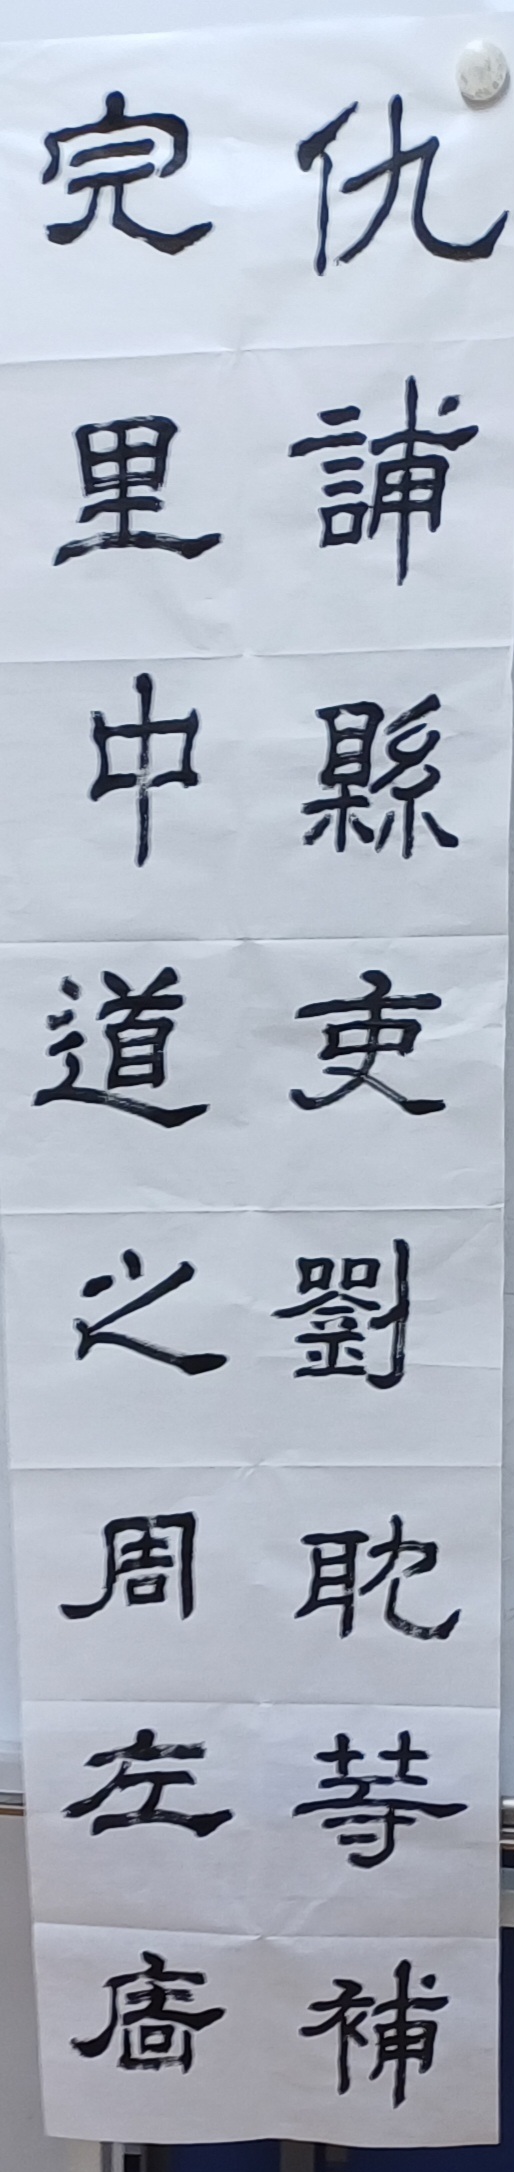 仇誧縣吏劉耽等補
完里中道之周左廧